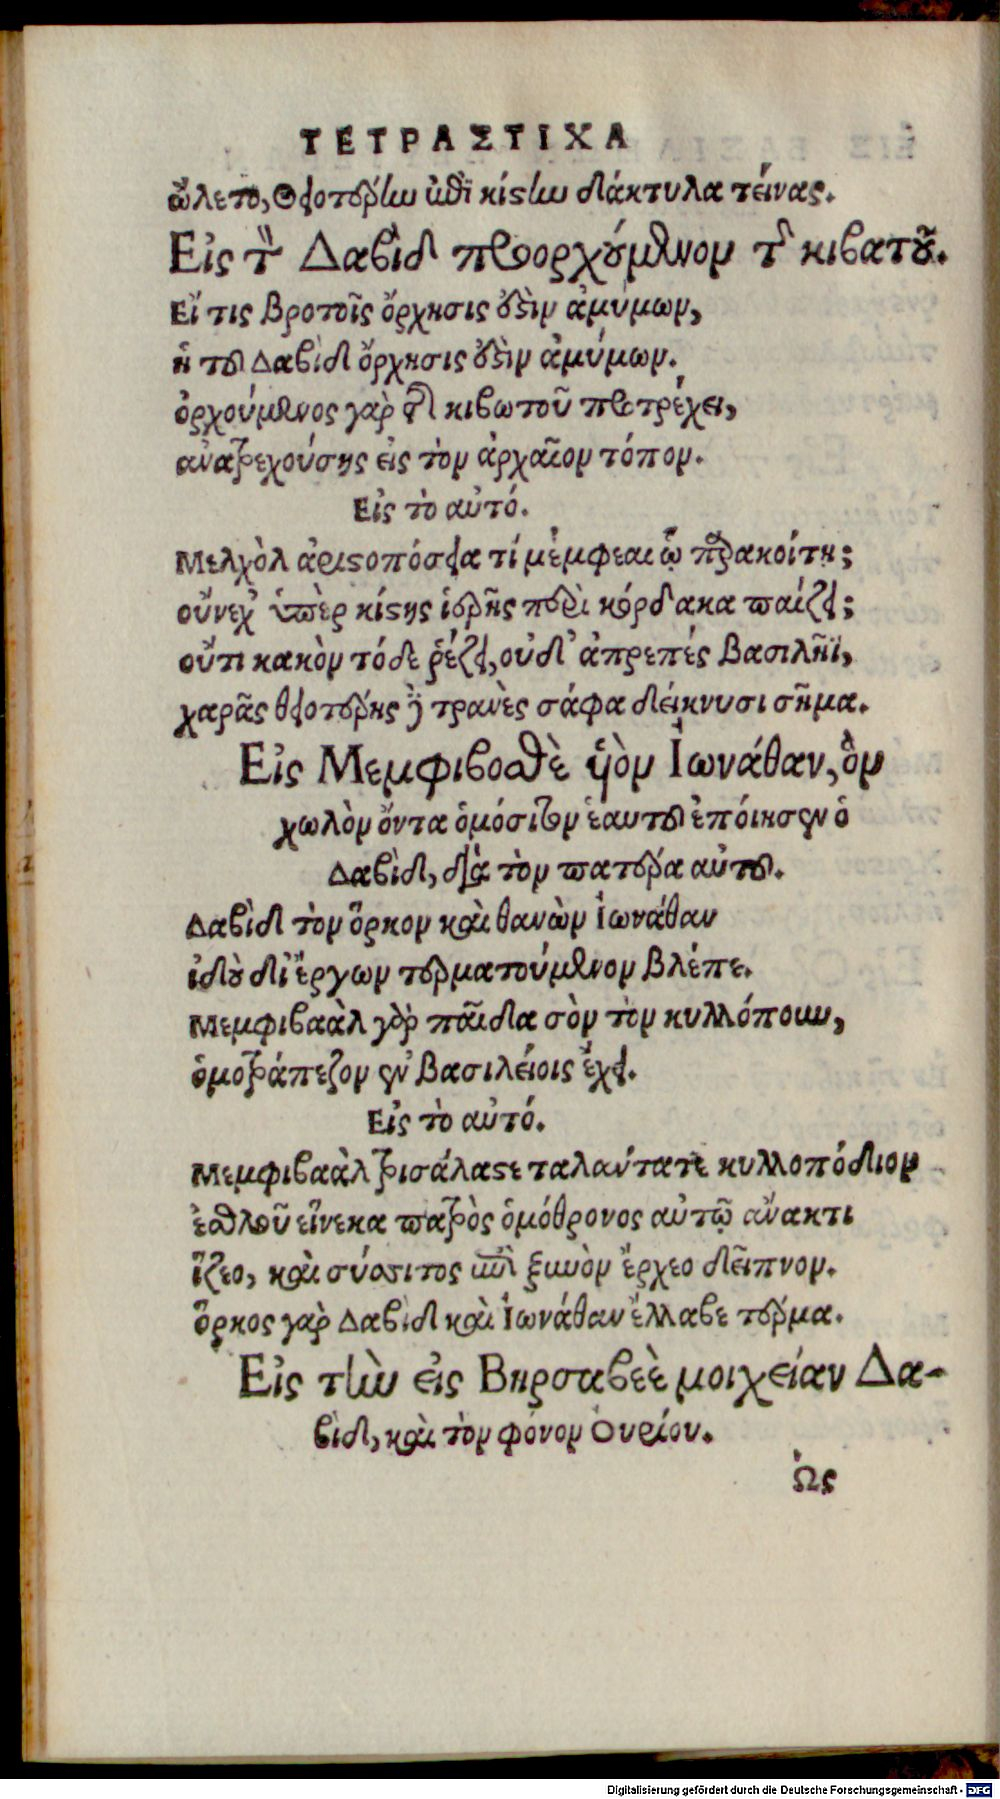 ΤΕΤΡΑΣΤΙΧΑ
ὤλετο, Θειοτέρην ἐπὶ κίστην δάκτυλα τείνας.
Εἰς τὸν Δαβὶδ προορχούμενον τῆς κιβωτοῦ.
Εἴ τις βροτοῖς ὄρχησις οὖσιν ἀμύμων,
ἡ τοῦ Δαβὶδ ὄρχησις οὖσιν ἀμύμων.
ὀρχούμενος γὰρ τῆς κιβωτοῦ προτρέχει,
ἀνατρεχούσης εἰς τὸν ἀρχαῖον τόπον.
Εἰς τὸ αὐτό.
Μελχὸλ ἀριστοπόσεια τί μέμφεαι ᾧ παρακοίτῃ;
οὕνεχ' ὑπὲρ κίστης ἱερῆς περὶ κόρδακα παίζει;
οὔτι κακὸν τόδε ῥέζει, οὐδ' ἀπρεπὲς βασιλῆϊ,
χαρᾶς θειοτέρης γὰρ τρανὲς σάφα δείκνυσι σῆμα.
Εἰς Μεμφιβοσθὲ υἱὸν Ἰωνάθαν, ὃν
χωλὸν ὄντα ὁμόσιτον ἑαυτοῦ ἐποίησεν ὁ
Δαβὶδ, διὰ τὸν πατέρα αὐτοῦ.
Δαβὶδ τὸν ὅρκον καὶ θανὼν Ἰωνάθαν
ἰδοὺ δι' ἔργων τερματούμενον βλέπε.
Μεμφιβαὰλ γὰρ παῖδα σὸν τὸν κυλλόπουν,
ὁμοτράπεζον ἐν βασιλείοις ἔχει.
Εἰς τὸ αὐτό.
Μεμφιβαὰλ τρισάλαστε ταλάντατε κυλλοπόδιον
ἐσθλοῦ εἵνεκα πατρὸς ὁμόθρονος αὐτῷ ἄνακτι
ἵζεο, καὶ σύσσιτος ἐπὶ ξυνὸν ἔρχεο δεῖπνον.
ὅρκος γὰρ Δαβὶδ καὶ Ἰωνάθαν ἔλλαβε τέρμα.
Εἰς τὴν εἰς Βηρσαβεὲ μοιχείαν Δα-
βὶδ, καὶ τὸν φόνον Οὐρίου.
Ὡς
Digitalisierung gefördert durch die Deutsche Forschungsgemeinschaft - DFG